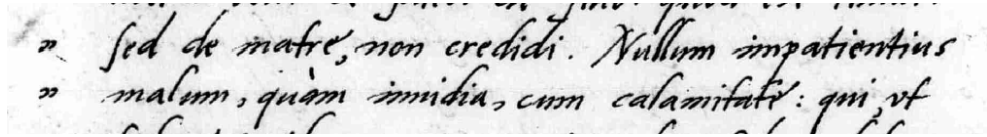 " sed de matre, non credidi. Nullum impatientius
" malum, quàm inuidia, cum calamitate: qui, vt